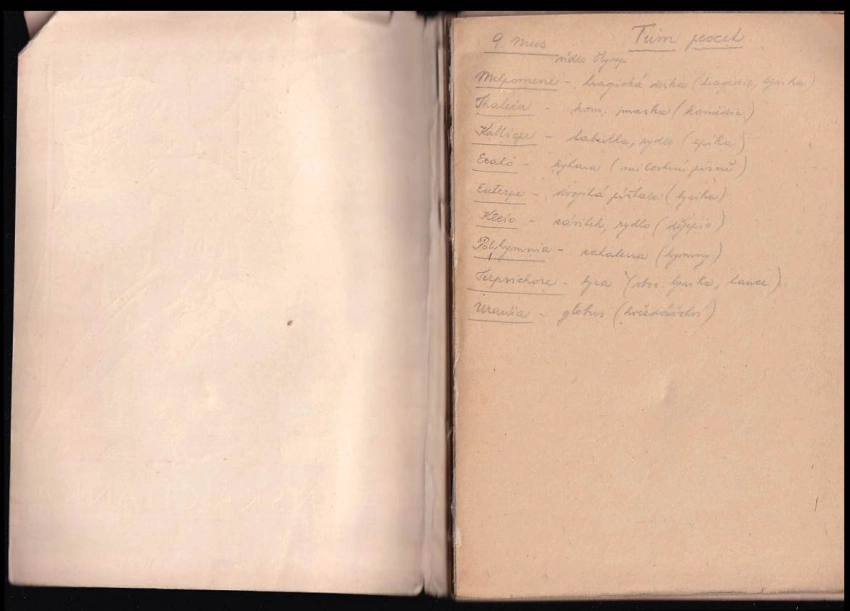 9. Mus
Melpomene - tragická maska (tragédie, lyrika)
Thaleia - kom. maska (komédie)
Kalliope - tabulka, rydlo (epika)
Erató - kytara (milostní písně)
Euterpe - dvojitá píšťala (lyrika)
Kleio - svitek, rydlo (dějepis)
Polyhymnia - zahalena (hymny)
Terpsichore - lyra (sbor. lyrika, tance)
Urania - globus (hvězdářství)